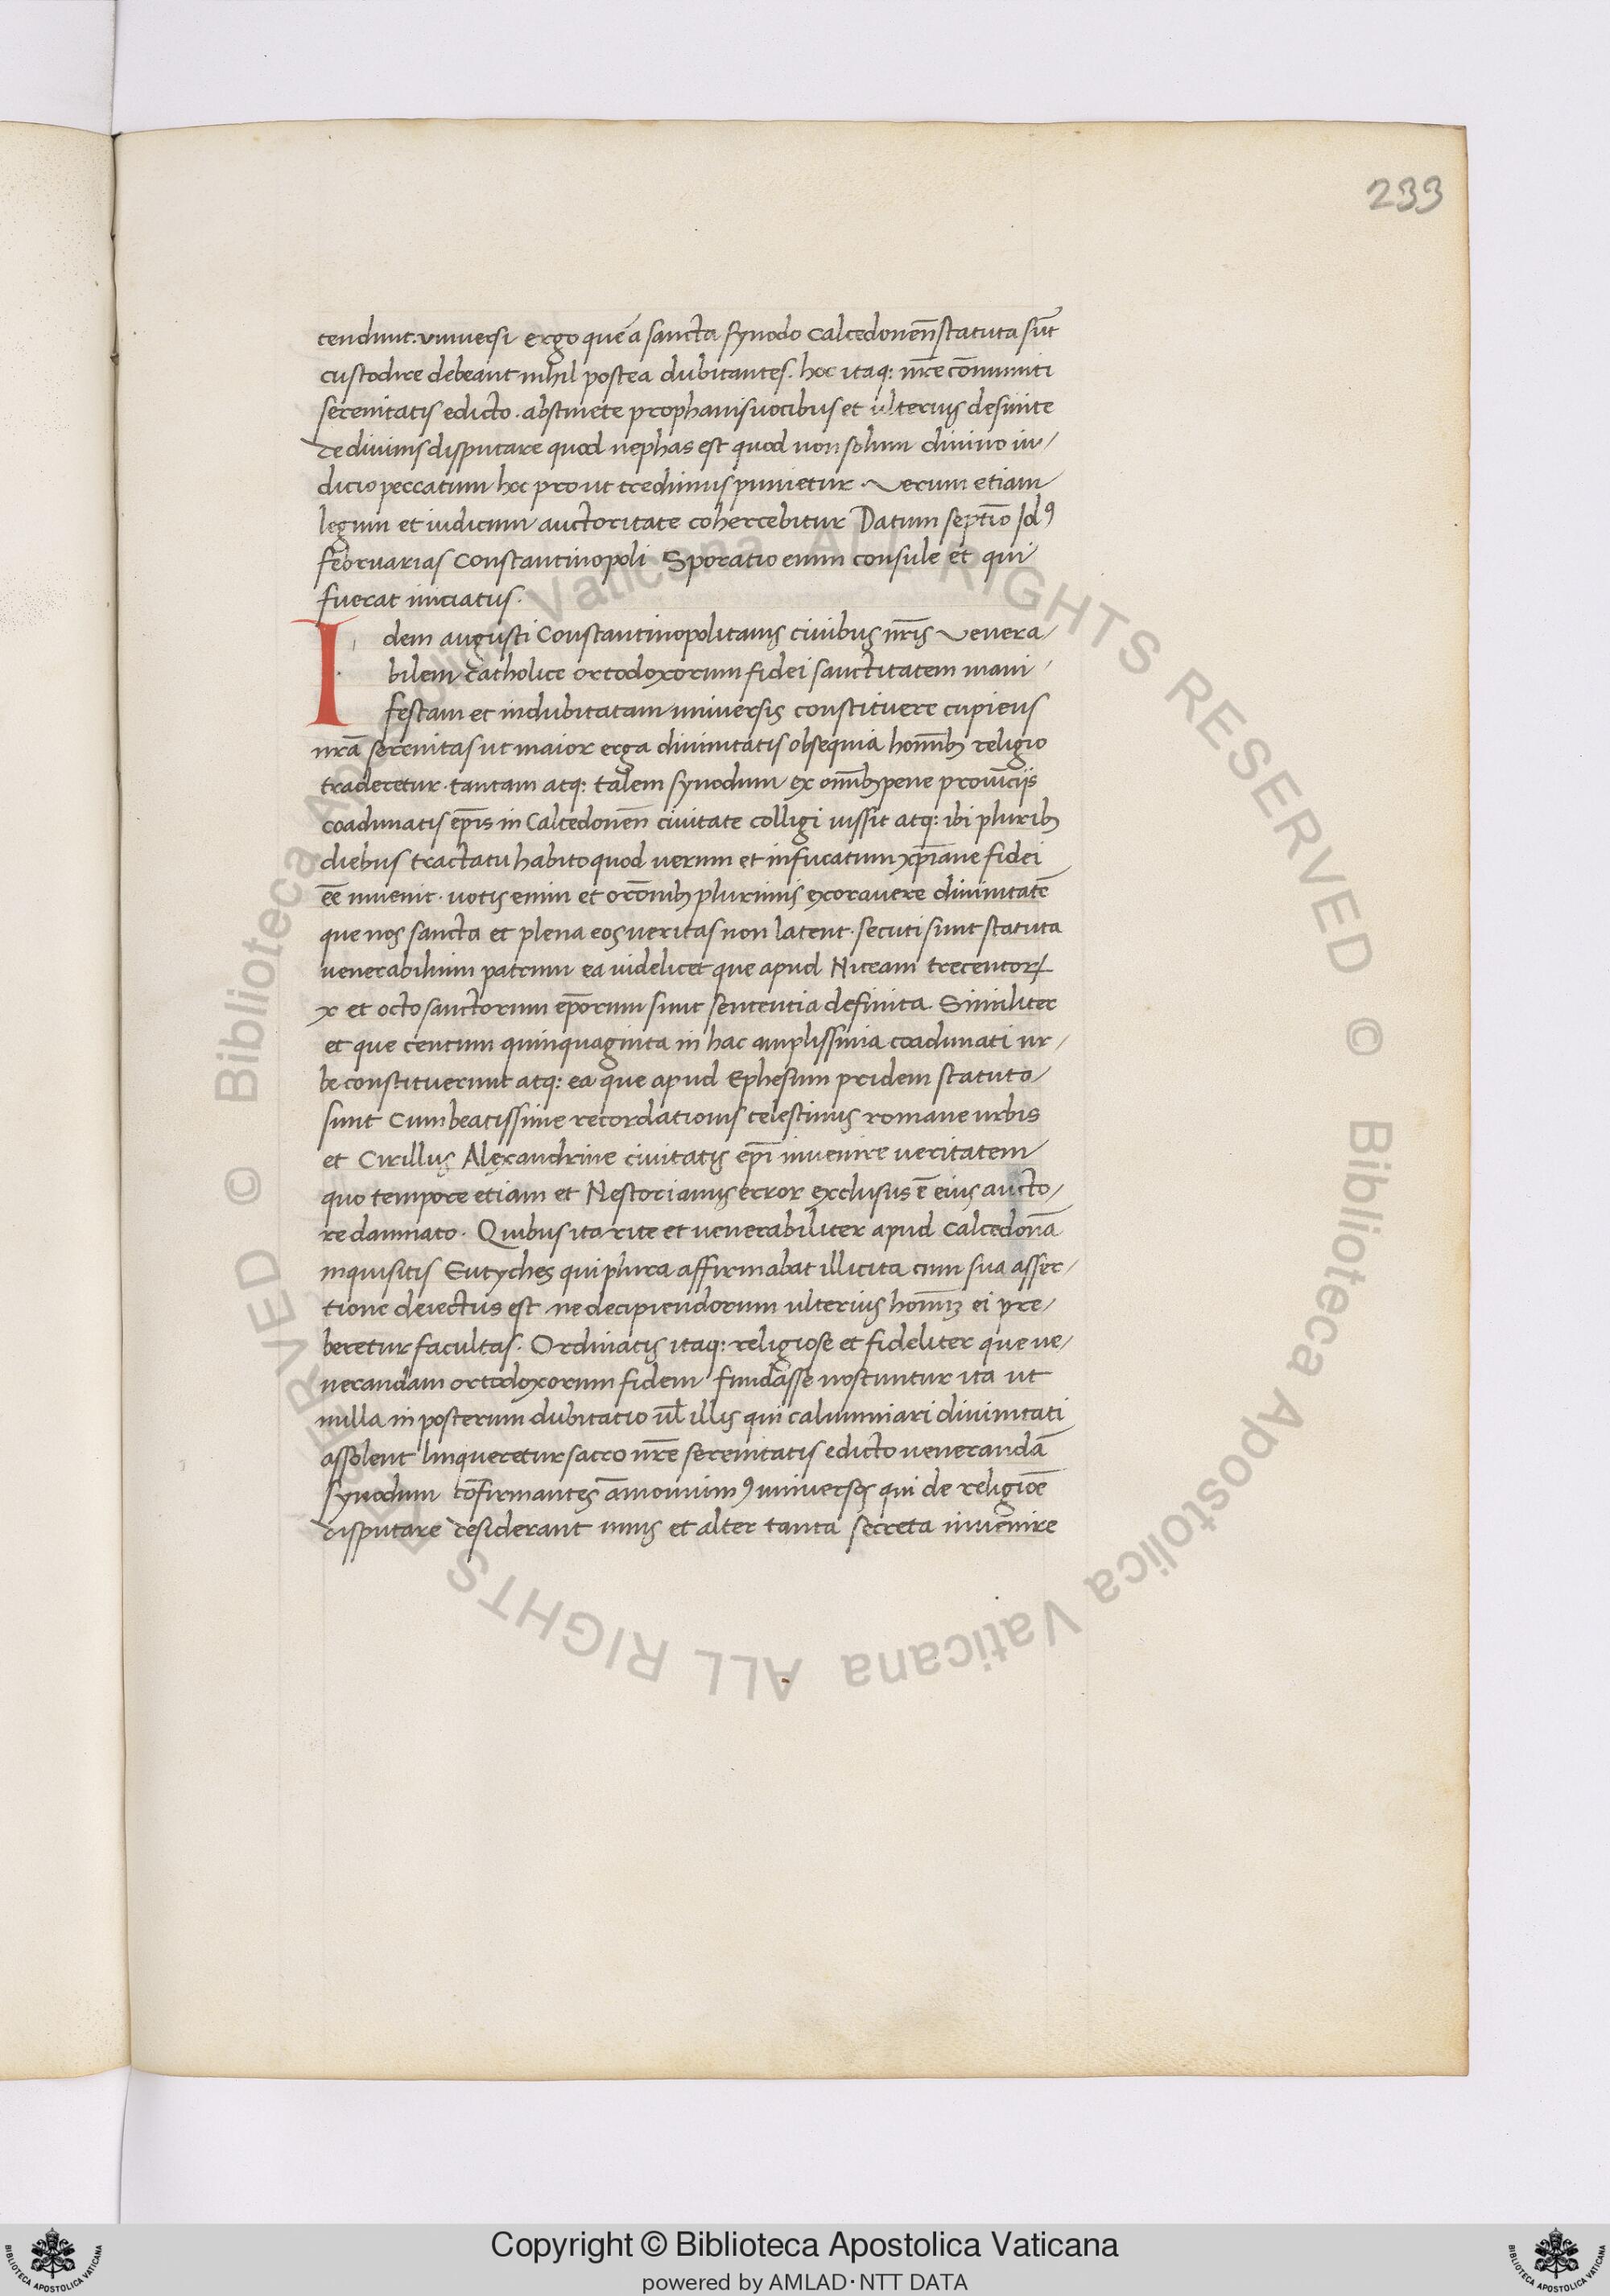 233
tendunt. universi ergo que a sancta synodo Calcedonen̄ statuta sūt
custodire debeant nihil postea dubitantes. hoc itaq: nr̄e cōmuniti
serenitatis edicto. abstinete prophanis vocibus et ulterius desinite
de divinis disputare quod nephas est quod non solum divino iu/
dicio peccatum hoc prout credimus punietur. Verum etiam
legum et iudicum auctoritate cohercebitur Datum septīo Idꝰ
februarias Constantinopoli Sporatio enim consule et qui
fuerat iniciatus.
Idem augusti Constantinopolitanis civibus nr̄is Venera/
bilem catholice ortodoxorum fidei sanctitatem mani/
festam et indubitatam universis constituere cupiens
nr̄a serenitas ut maior erga divinitatis obsequia hoīnibꝫ religio
traderetur. tantam atq: talem synodum ex omībꝫ pene provīciis
coadunatis ep̄is in Calcedonen̄ civitate colligi iussit atq: ibi pluribꝫ
diebus tractatu habito quod verum et infucatum xp̄iane fidei
eē invenit. votis enim et orōnibꝫ plurimis exoravere divinitatē
que nos sancta et plena eos veritas non latent. secuti sunt statuta
venerabilium patrum ea videlicet que apud Niceam trecentorꝝ
x et octo sanctorum ep̄orum sunt sententia definita. Similiter
et que centum quinquaginta in hac amplissima coadunati ur/
be constituerunt atq: ea que apud Ephesum pridem statuto
sunt Cum beatissime recordationis celestinus romane urbis
et Cirillus Alexandrine civitatis ep̄i invenire veritatem
quo tempore etiam et Nestorianus error exclusus ē eius aucto/
re damnato. Quibus ita rite et venerabiliter apud Calcedonā
inquisitis Eutyches qui plura affirmabat illicita cum sua asser/
tione deiectus est ne decipiendorum ulterius homīꝫ ei pre/
beretur facultas. Ordinatis itaq: religiose et fideliter que ve/
nerandam ortodoxorum fidem fundasse noscuntur ita ut
nulla in posterum dubitatio vl̄ illis qui calumniari divinitati
assolent linqueretur sacro nr̄e serenitatis edicto venerandā
synodum cōfirmantes āmonuimꝰ universos qui de religiōe
disputare desiderant unus et alter tanta secreta invenire
Copyright © Biblioteca Apostolica Vaticana
powered by AMLAD·NTT DATA